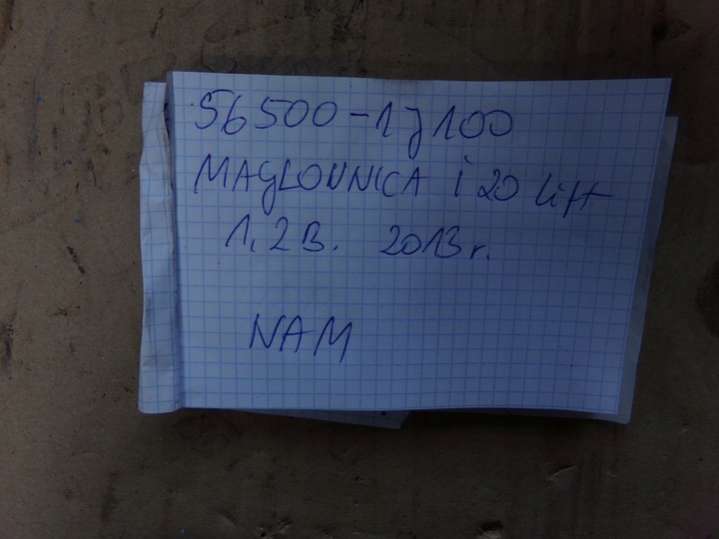 56500-1J100
MAGLOWNICA i20 lift
1,2B. 2013r.
NAM